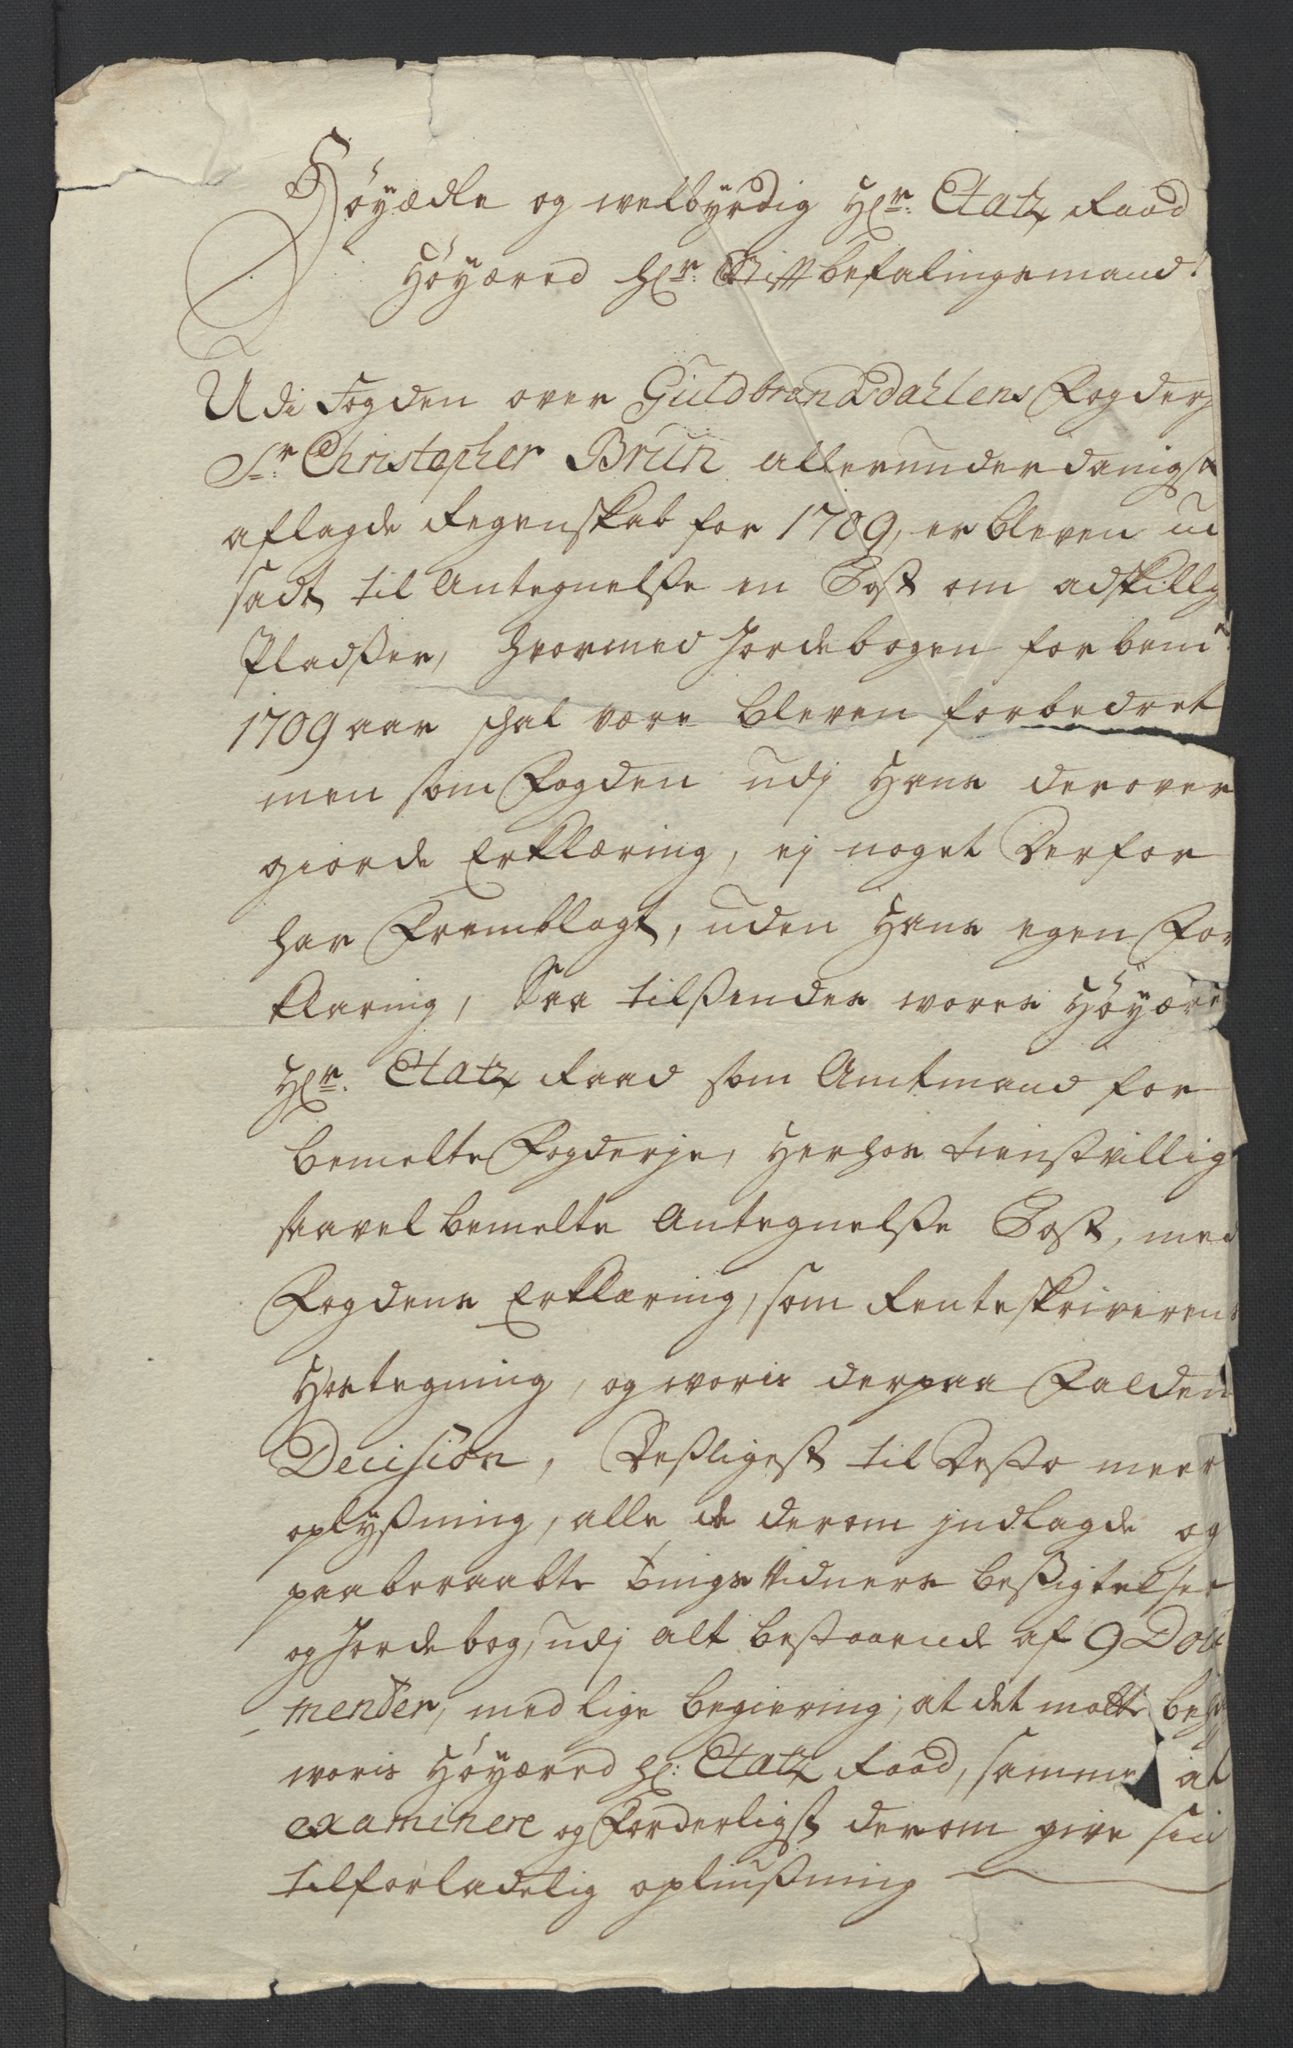 Höyædle og welbyrdig Hr. Etatz Raad
Höyæred hr. Stiftbefalingsmand!
Udi Fogden over Guldbrandsdahlens Fogderj
Sr. Christopher Brun allerunderdanigst
aflagde Regenskab for 1709, er bleven ud
sadt til Antegnelsse en Post om adskillige
Pladsser, hvormed Jordebogen for bemte
1709 aar schal være bleven forbedret
men som Fogden udj Hans derover
giorde Erklæring, ej noget derfor
har Fremblagt, uden Hans egen For
klaring, Saa tilssendes wores Höyære
Hr. Etatz Raad som Amtmand for
bemelte Fogderje, Herhos tienstvillig
saavel bemelte Antegnelsse Post, med
Fogdens Erklæring, som Renteskriverens
Hostegning, og woris derpaa Falden
Decision, Desligest til desto meer
oplyssning, alle de derom jndlagde og
paaberaabte Tings Vidners bessigtelser
og Jordebog, udj alt bestaaende af 9 Docu
menter, med lige begiering, at det motte
woris Höyæred hr: Etatz Raad, samme at
examinere og Forderligst derom give sin
tilforladelig opliussning